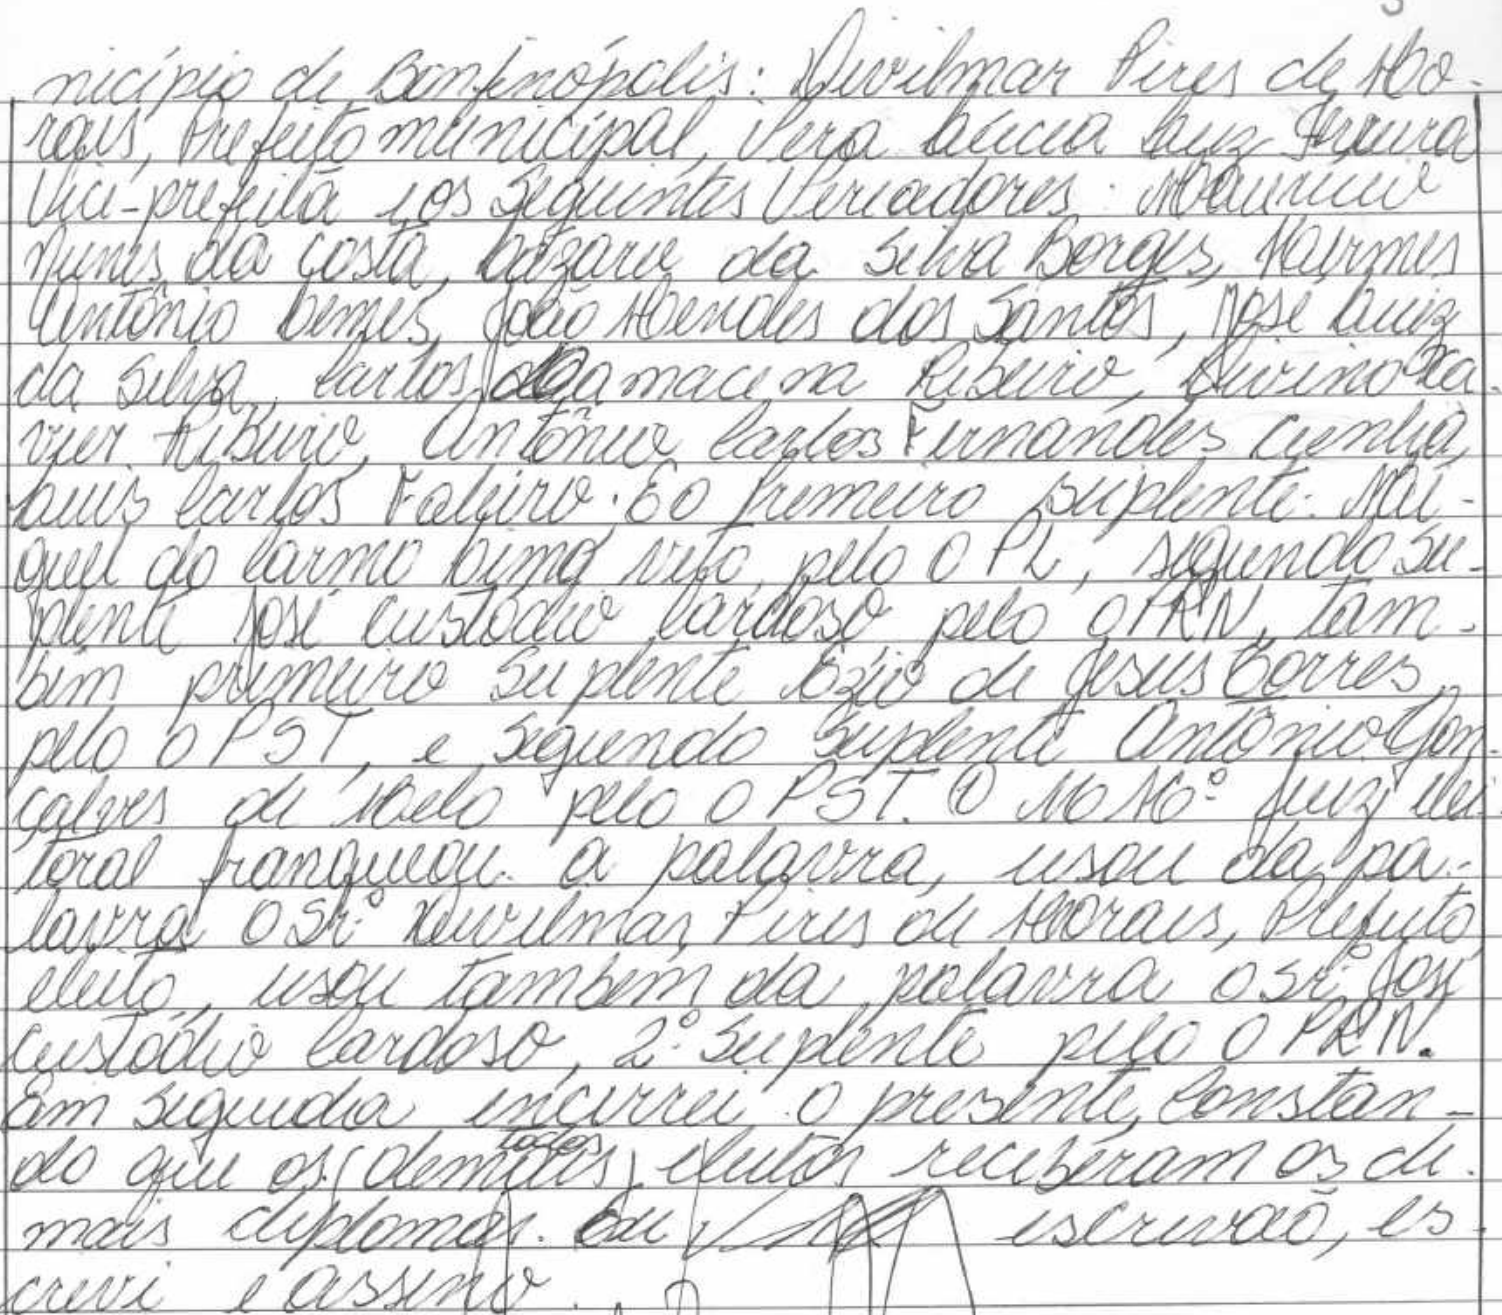 nicípio de Bonfinópolis: Divilmar Pires de Mo-
rais, Prefeito municipal, Vera Lúcia Luiz Ferreira
Vice-prefeita e os Seguintes Vereadores: Maurício
Nunes da Costa, Lázaro da Silva Borges, Hermes
Antônio Lemes, João Mendes dos Santos, José Luiz
da Silva, Carlos Damacena Ribeiro, Divino Xa-
vier Ribeiro, Antônio Carlos Fernandes Cunha,
Luiz Carlos Faleiro. E o Primeiro Suplente: Mi-
guel do Carmo Neto, pelo o PL, segundo Su-
plente José Custódio Cardoso pelo o PRN, tam-
bém primeiro Suplente Ézio de Jesus Torres,
pelo o PST, e Segundo Suplente Antônio Gon-
çalves de Melo pelo o PST. O MM° Juiz elei-
toral franqueou a palavra, usou da pa-
lavra O Sr° Divilmar Pires de Morais, Prefeito
eleito, usou também da palavra o Sr° José
Custódio Cardoso, 2° Suplente pelo O PRN.
Em seguida encerrei o presente, Constan-
do que os (demais) todos eleitos receberam os de-
mais diplomas. Eu escrivão, es-
crevi e assino.